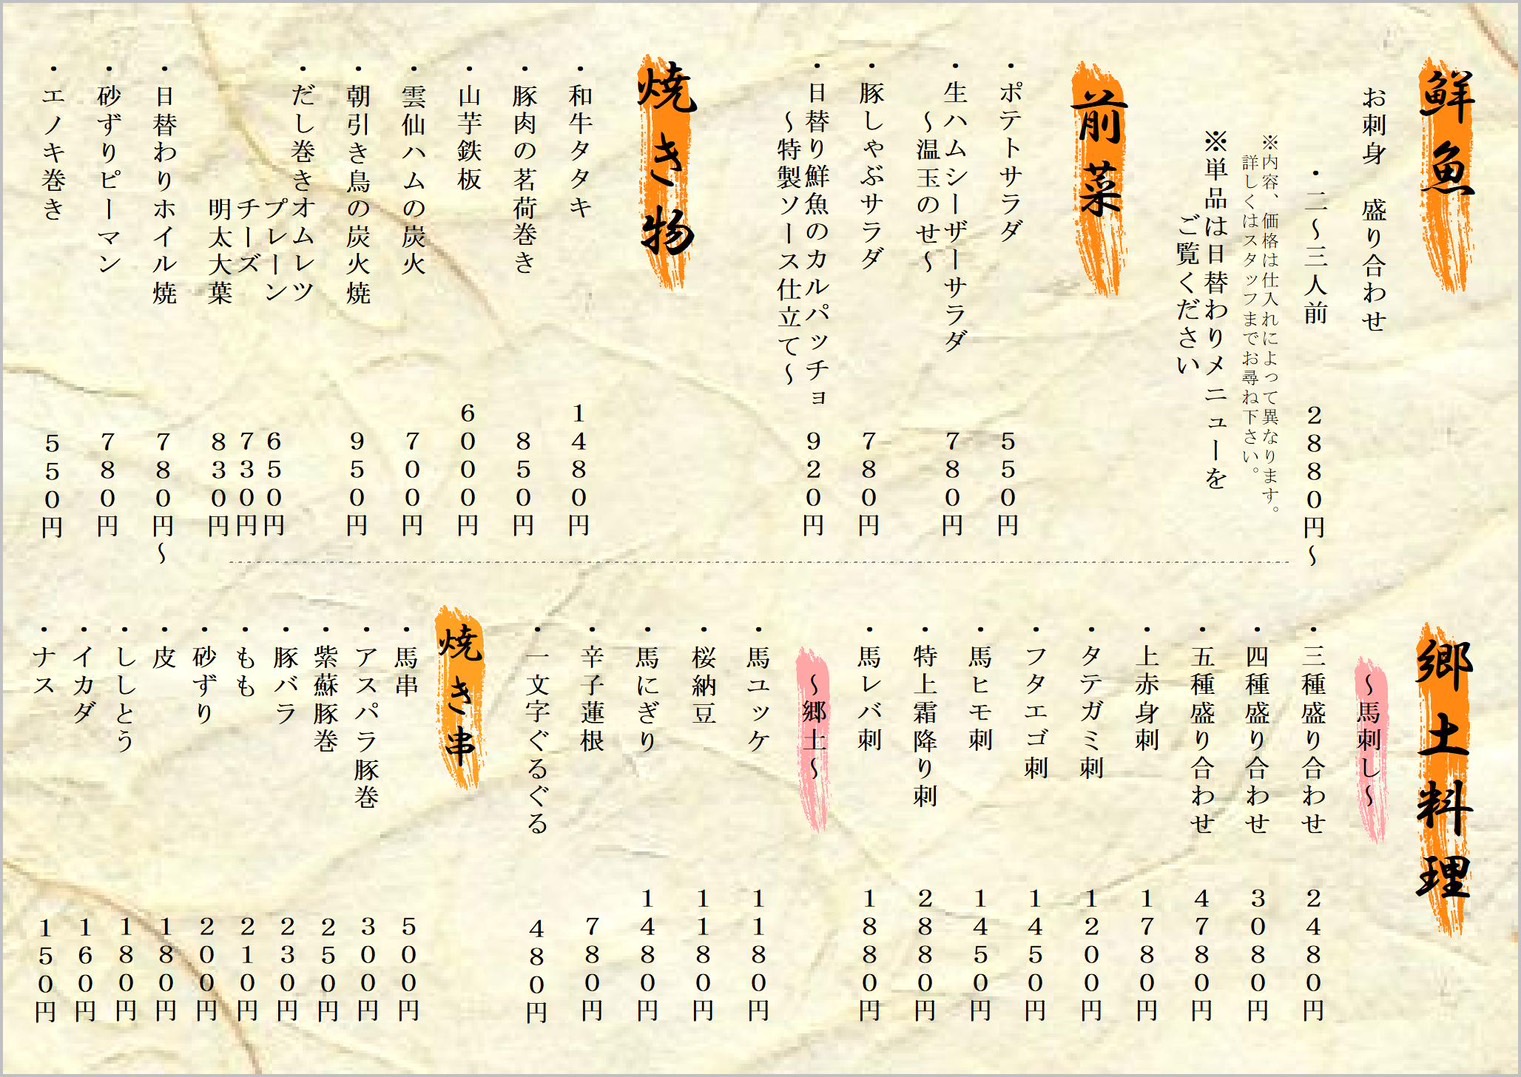 鮮魚
お刺身　盛り合わせ
・二～三人前　2880円～
※内容、価格は仕入れによって異なります。
詳しくはスタッフまでお尋ね下さい。
※単品は日替わりメニューを
ご覧ください
前菜
・ポテトサラダ　550円
・生ハムシーザーサラダ　780円
～温玉のせ～
・豚しゃぶサラダ　780円
・日替り鮮魚のカルパッチョ　920円
～特製ソース仕立て～
焼き物
・和牛タタキ　1480円
・豚肉の茗荷巻き　850円
・山芋鉄板　6000円
・雲仙ハムの炭火　700円
・朝引き鳥の炭火焼　950円
・だし巻きオムレツ
プレーン　650円
チーズ　730円
明太大葉　830円
・日替わりホイル焼　780円～
・砂ずりピーマン　780円
・エノキ巻き　550円
郷土料理
～馬刺し～
・三種盛り合わせ　2480円
・四種盛り合わせ　3080円
・五種盛り合わせ　4780円
・上赤身刺　1780円
・タテガミ刺　1200円
・フタエゴ刺　1450円
・馬ヒモ刺　1450円
・特上霜降り刺　2880円
・馬レバ刺　1880円
～郷土～
・馬ユッケ　1180円
・桜納豆　1180円
・馬にぎり　1480円
・辛子蓮根　780円
・一文字ぐるぐる　480円
焼き串
・馬串　500円
・アスパラ豚巻　300円
・紫蘇豚巻　250円
・豚バラ　230円
・もも　210円
・砂ずり　200円
・皮　180円
・ししとう　180円
・イカダ　160円
・ナス　150円